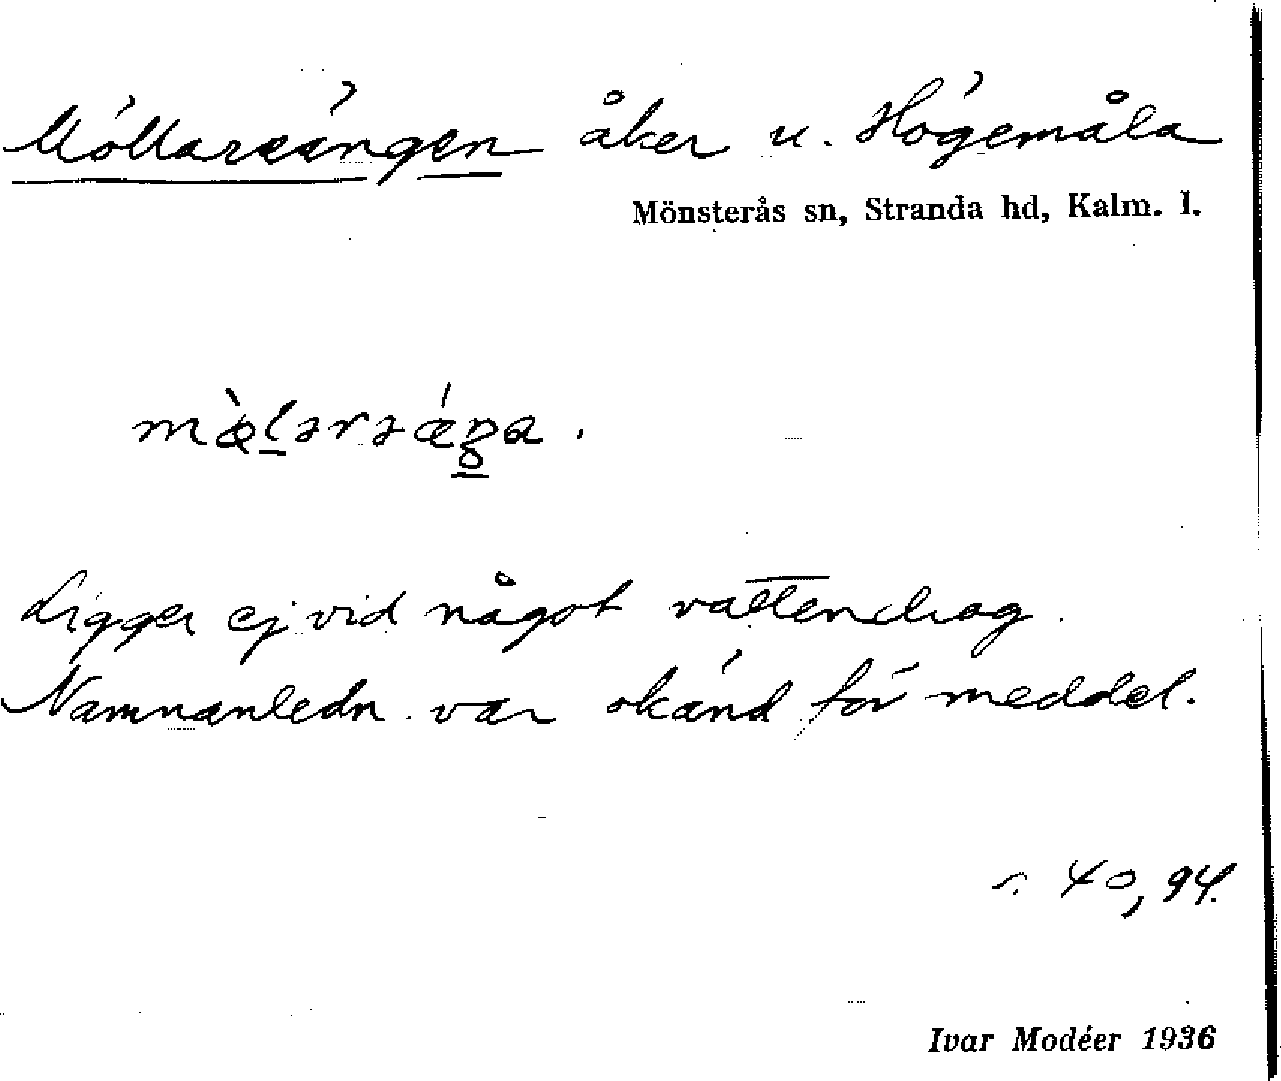 Möllareängen åker u. Högemåla
Mönsterås sn, Stranda hd, Kalm. l.
Ligger ej vid något vattendrag.
Namnanledn. var okänd för meddel.
s. 40, 94.
Ivar Modéer 1936